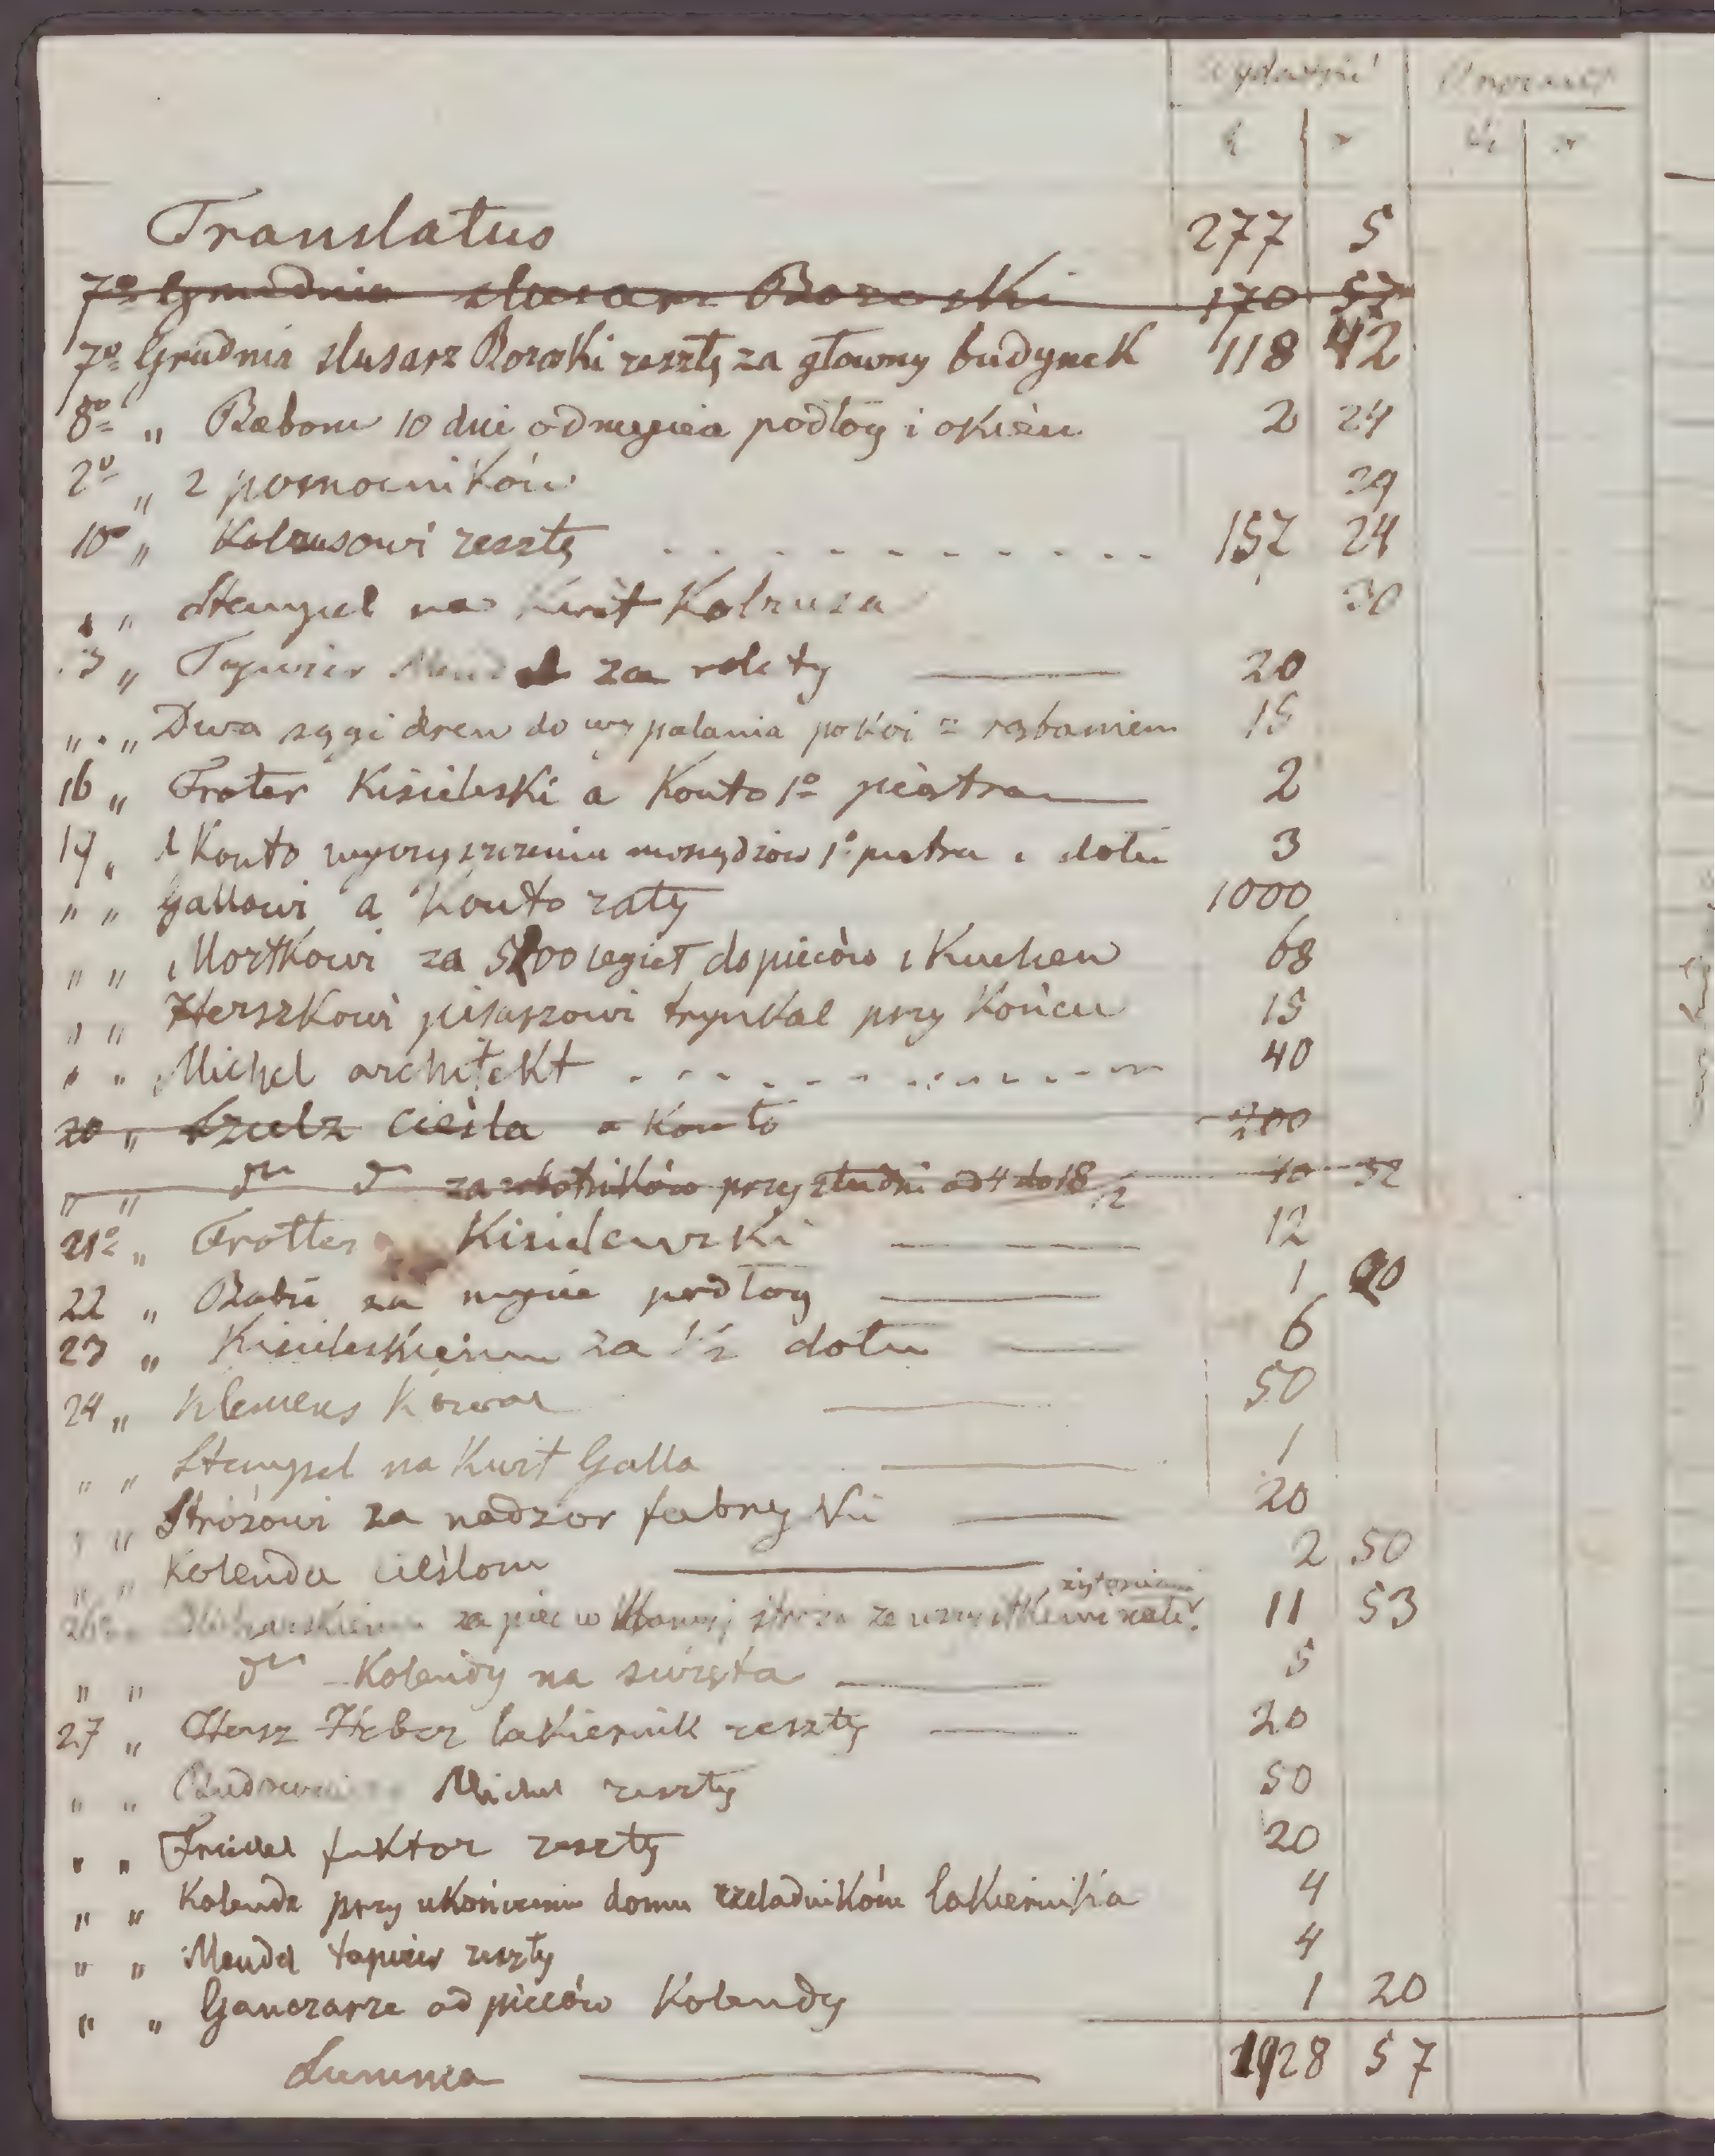 Translatus 277 5
7º Grudnia slusarz Boroski 170 57
7º Grudnia slusarz Boroski resztę za głowny budynek 118 42
8º " Babom 10 dni od mycia podłog i okien 2 24
2º " 2 pomocników 29
10º " Kolrusowi resztę 157 24
" " Stempel na kwit Kolrusa 30
13 " Tapicier Mendel za rolety 20
" " Dwa sągi drew do wypalania pokoi z rąbaniem 15
16 " Froter Kisieleski a Konto 1º piętra 2
17 " a Konto wyczyszczenia mosiędzow 1º piętra i dołu 3
" " Gallowi a Konto raty 1000
" " Mortkowi za 5200 cegieł do pieców i Kuchen 68
" " Herszkowi pisarzowi trynkal przy Końcu 15
" " Michel architekt 40
20 " Szulz cieśla a Konto 200
" " dtto dtto za robotników przy studni od 4 do 18/12 10 32
21º " Frotter Kisielewski 12
22 " Babie za mycie podłog 1 20
23 " Kisieleskiemu za 1/2 dołu 6
24 " Klemens Kowal 50
" " Stempel na Kwit Galla 1
" " Stróżowi za nadzor fabryki 20
" " Kolenda cieślom 2 50
26º za piec w stróża ze wszystkiemi 11 53
" " dtto Kolendy na święta 5
27 " Hersz Heber lakiernik resztę 20
" " Budowniczy Michel resztę 50
" " faktor resztę 20
" " Kolenda przy ukończeniu domu czeladników lakiernika 4
" " Mendel tapicier resztę 4
" " Ganczarze od pieców Kolendy 1 20
Summa 1928 57